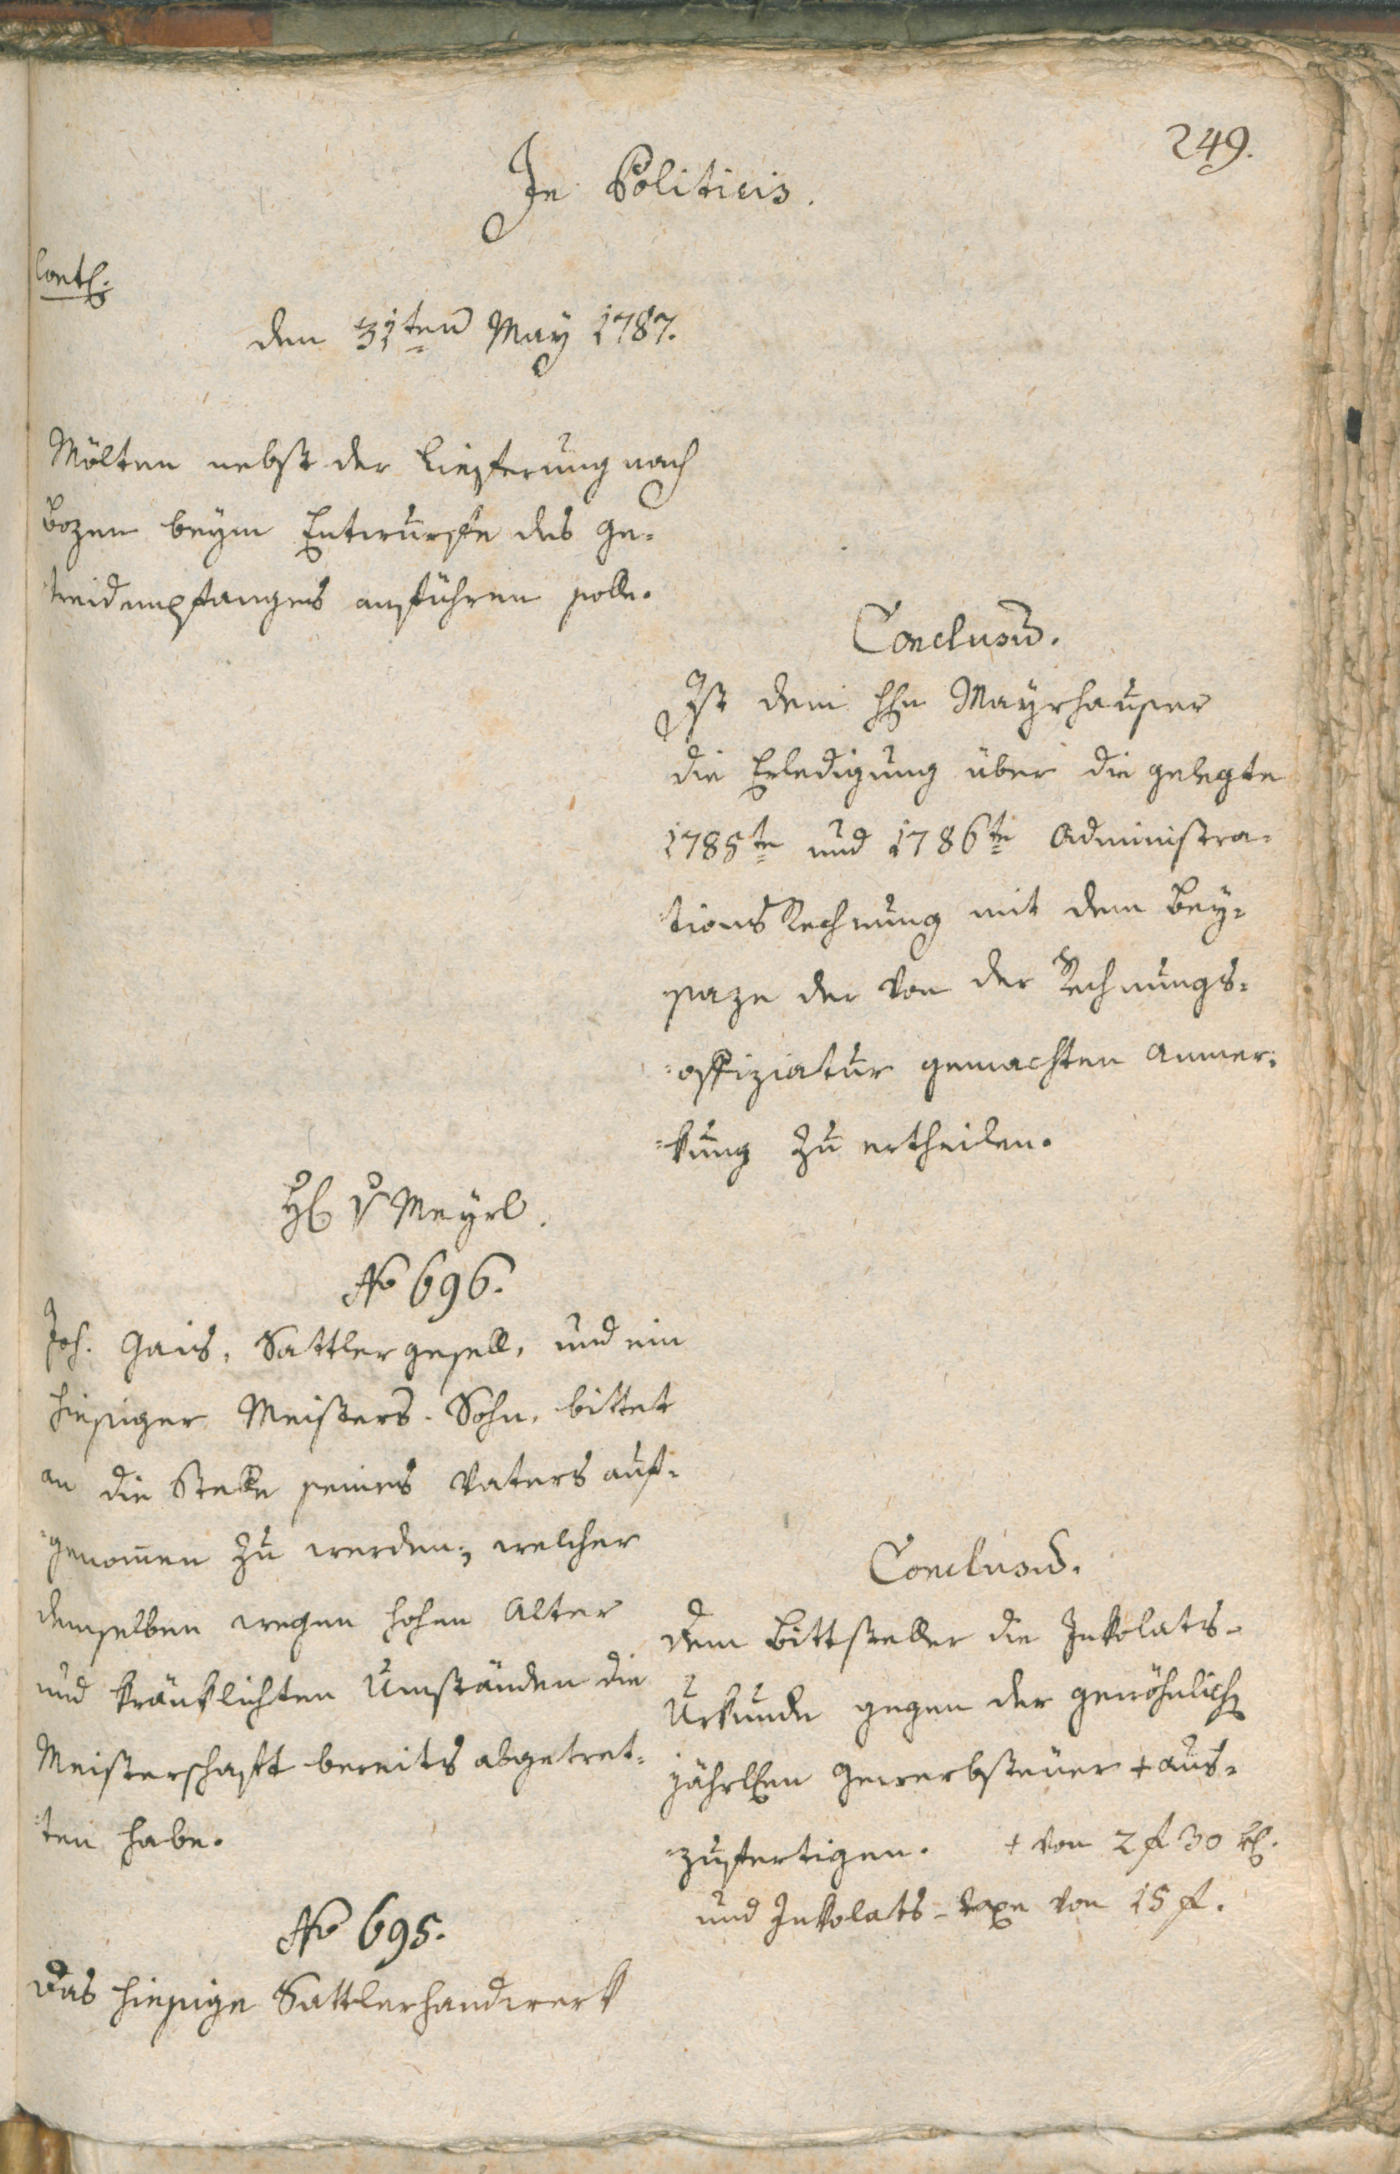 249.
In Politicis.
Cont.
den 31ten May 1787.
Mölten nebst der Liefferung nach
Bozen beym Entwurffe des Ge=
treidempfanges anführen solle.
Conclusum.
Ist dem Hhn Mayrhauser
die Erledigung über die gelegte
1785te und 1786te Administra=
tions Rechnung mit dem Bey=
saze der von der Rechnungs=
=offiziatur gemachten Anmer=
=kung zu ertheilen.
H v Meyrl.
No 696.
Joh. Gais, Sattlergesell, und ein
hiesiger Meisters-Sohn, bittet
an die Stelle seines Vaters auf=
=genommen zu werden, welcher
demselben wegen hohen Alter
und kränklichten Umständen die
Meisterschafft bereits abgetret=
=ten habe.
Conclusum.
Dem Bittsteller die Inkolats-
Urkunde gegen der gewöhnlich
jährlichen Gewerbsteuer + aus=
=zufertigen. + von 2 f 30 kr.
und Inkolats-Taxe von 15 f.
No 695.
Das hiesige Sattlerhandwerk